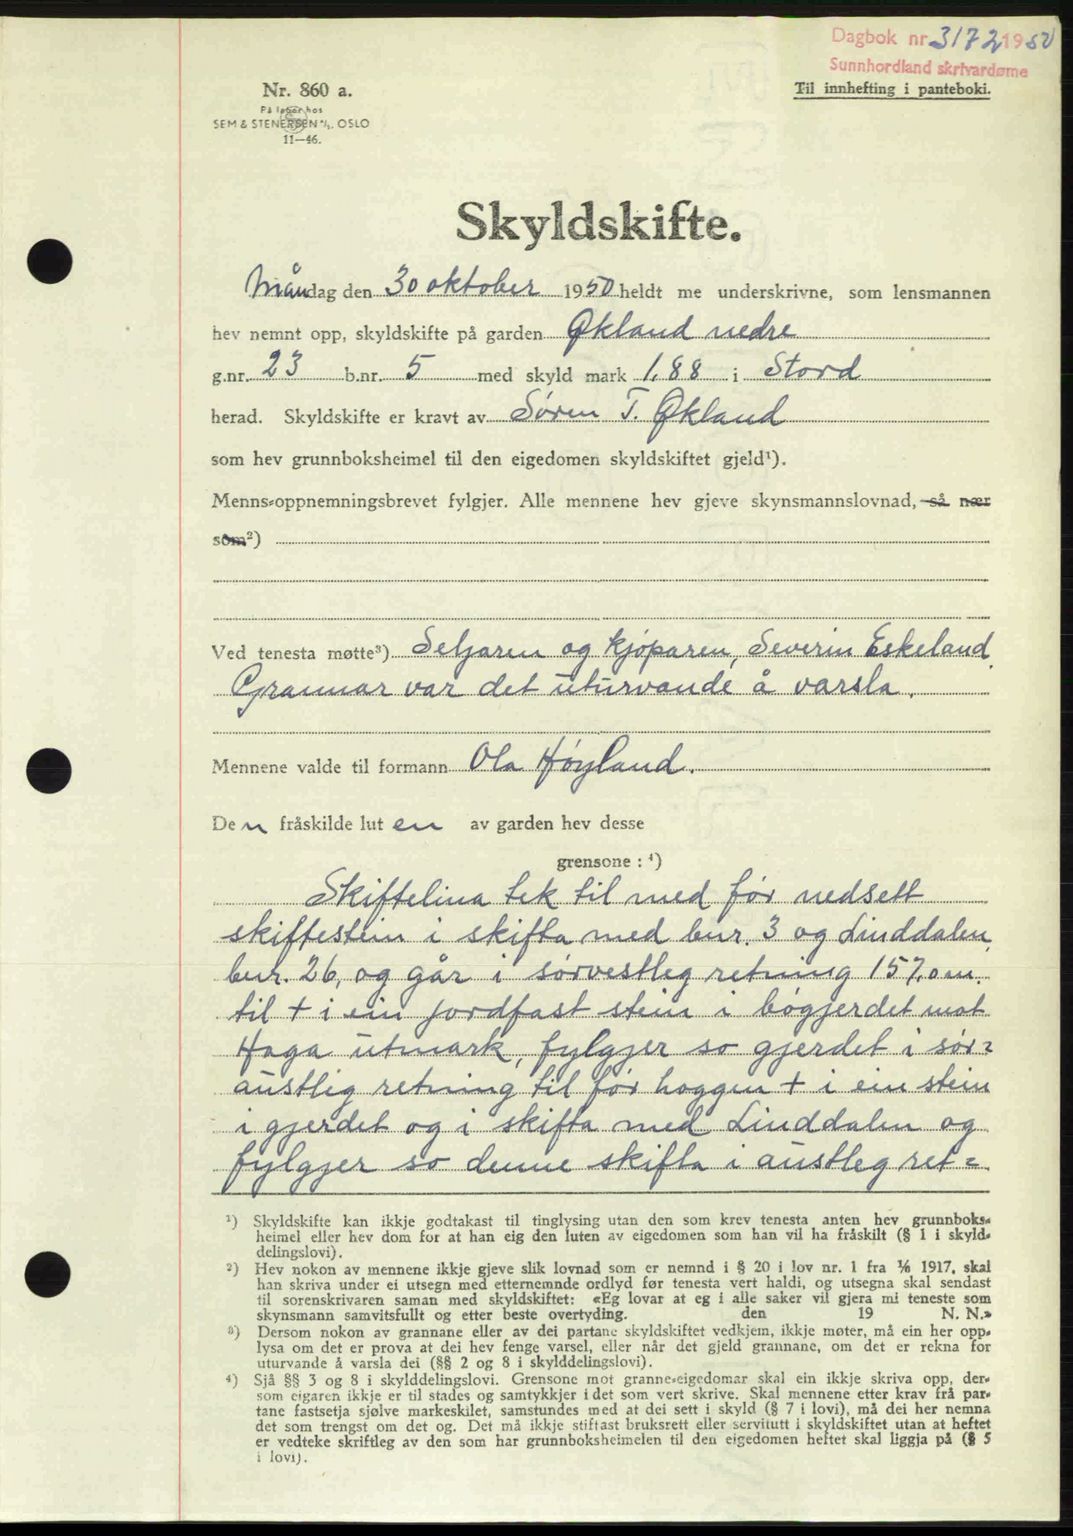 Dagbok nr. 3172 1950
Sunnhordland skrivardøme
Nr. 860 a.
Til innhefting i panteboki.
På lager hos
SEM & STENERSEN A/S. OSLO
11—46.
Skyldskifte.
Måndag den 30 oktober 1950 heldt me underskrivne, som lensmannen
hev nemnt opp, skyldskifte på garden Økland nedre
g.nr. 23 b.nr. 5 med skyld mark 1,88 i Stord
herad. Skyldskifte er kravt av Søren T. Økland
som hev grunnboksheimel til den eigedomen skyldskiftet gjeld¹).
Menns-oppnemningsbrevet fylgjer. Alle mennene hev gjeve skynsmannslovnad, så nær
som²)
Ved tenesta møtte³) Seljaren og kjøparen, Severin Eskeland.
Grannar var det uturvande å varsla.
Mennene valde til formann Ola Høyland.
Den fråskilde luten av garden hev desse
grensone : ⁴)
Skiftelina tek til med før nedsett
skiftestein i skifta med bnr. 3 og Linddalen,
bnr. 26, og går i sørvestleg retning 157,0 m.
til + i ein jordfast stein i bøgjerdet mot
Haga utmark, fylgjer so gjerdet i sør-
austlig retning til før hoggen + i ein stein
i gjerdet og i skifta med Linddalen og
fylgjer so denne skifta i austleg ret-
¹) Skyldskifte kan ikkje godtakast til tinglysing utan den som krev tenesta anten hev grunnboks-
heimel eller hev dom for at han eig den luten av eigedomen som han vil ha fråskilt (§ 1 i skyld-
delingslovi).
²) Hev nokon av mennene ikkje gjeve slik lovnad som er nemnd i § 20 i lov nr. 1 fra 1/6 1917, skal
han skriva under ei utsegn med etternemnde ordlyd før tenesta vert haldi, og utsegna skal sendast
til sorenskrivaren saman med skyldskiftet: «Eg lovar at eg i alle saker vil gjera mi teneste som
skynsmann samvitsfullt og etter beste overtyding. den 19 N. N.»
³) Dersom nokon av grannane eller av dei partane skyldskiftet vedkjem, ikkje møter, må ein her opp-
lysa om det er prova at dei hev fenge varsel, eller når det gjeld grannane, om det er rekna for
uturvande å varsla dei (§§ 2 og 8 i skylddelingslovi).
⁴) Sjå §§ 3 og 8 i skylddelingslovi. Grensone mot granne-eigedomar skal ein ikkje skriva opp, der-
som eigaren ikkje er til stades og samtykkjer i det som vert skrive. Skal mennene etter krav frå par-
tane fastsetja sjølve markeskilet, samstundes med at dei sett i skyld (§ 7 i lovi), må dei her nemna
det som trengst om det og. Det må ikkje stiftast bruksrett eller servitutt i skyldskiftet utan at heftet
er vedteke skriftleg av den som har grunnboksheimelen til den eigedomen heftet skal liggja på (§ 5
i lovi).